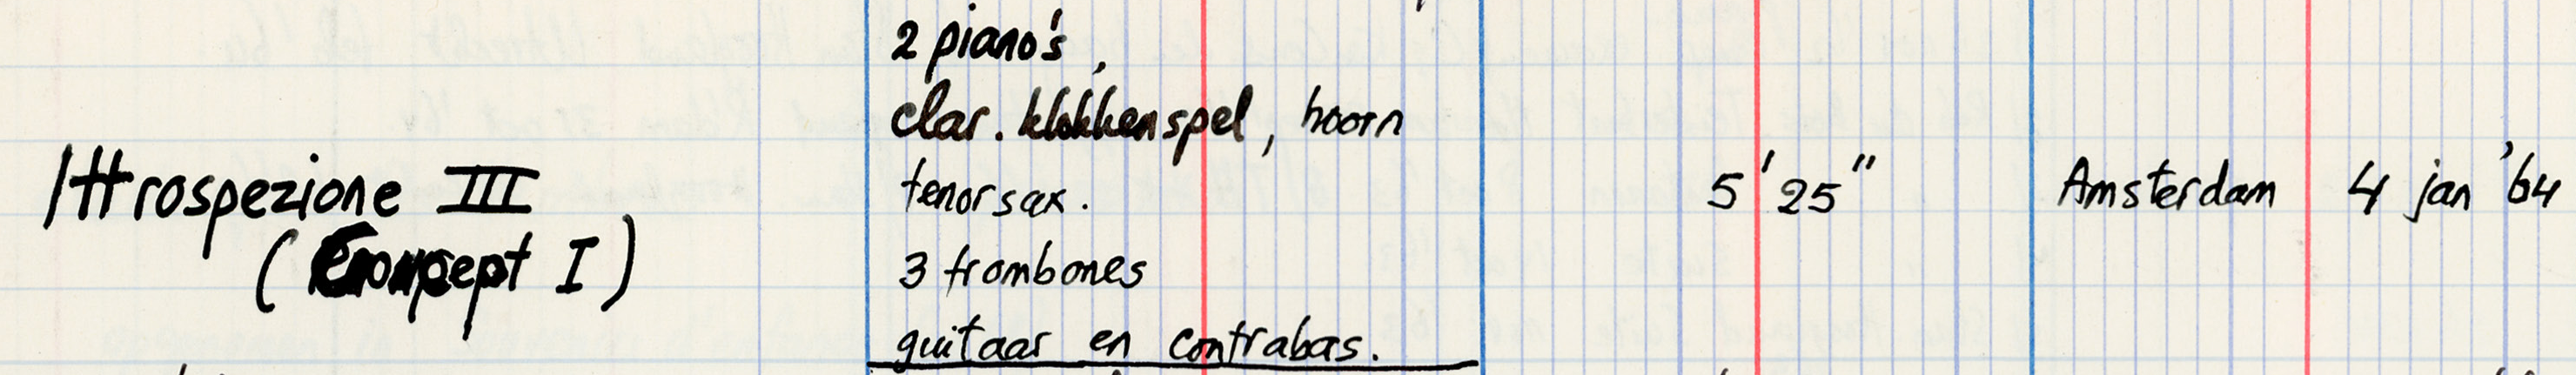 2 piano's,
clar. klokkenspel, hoorn
Ittrospezione III
tenorsax.
5'25"
Amsterdam
4 jan '64
(Concept I)
3 trombones
guitaar en contrabas.